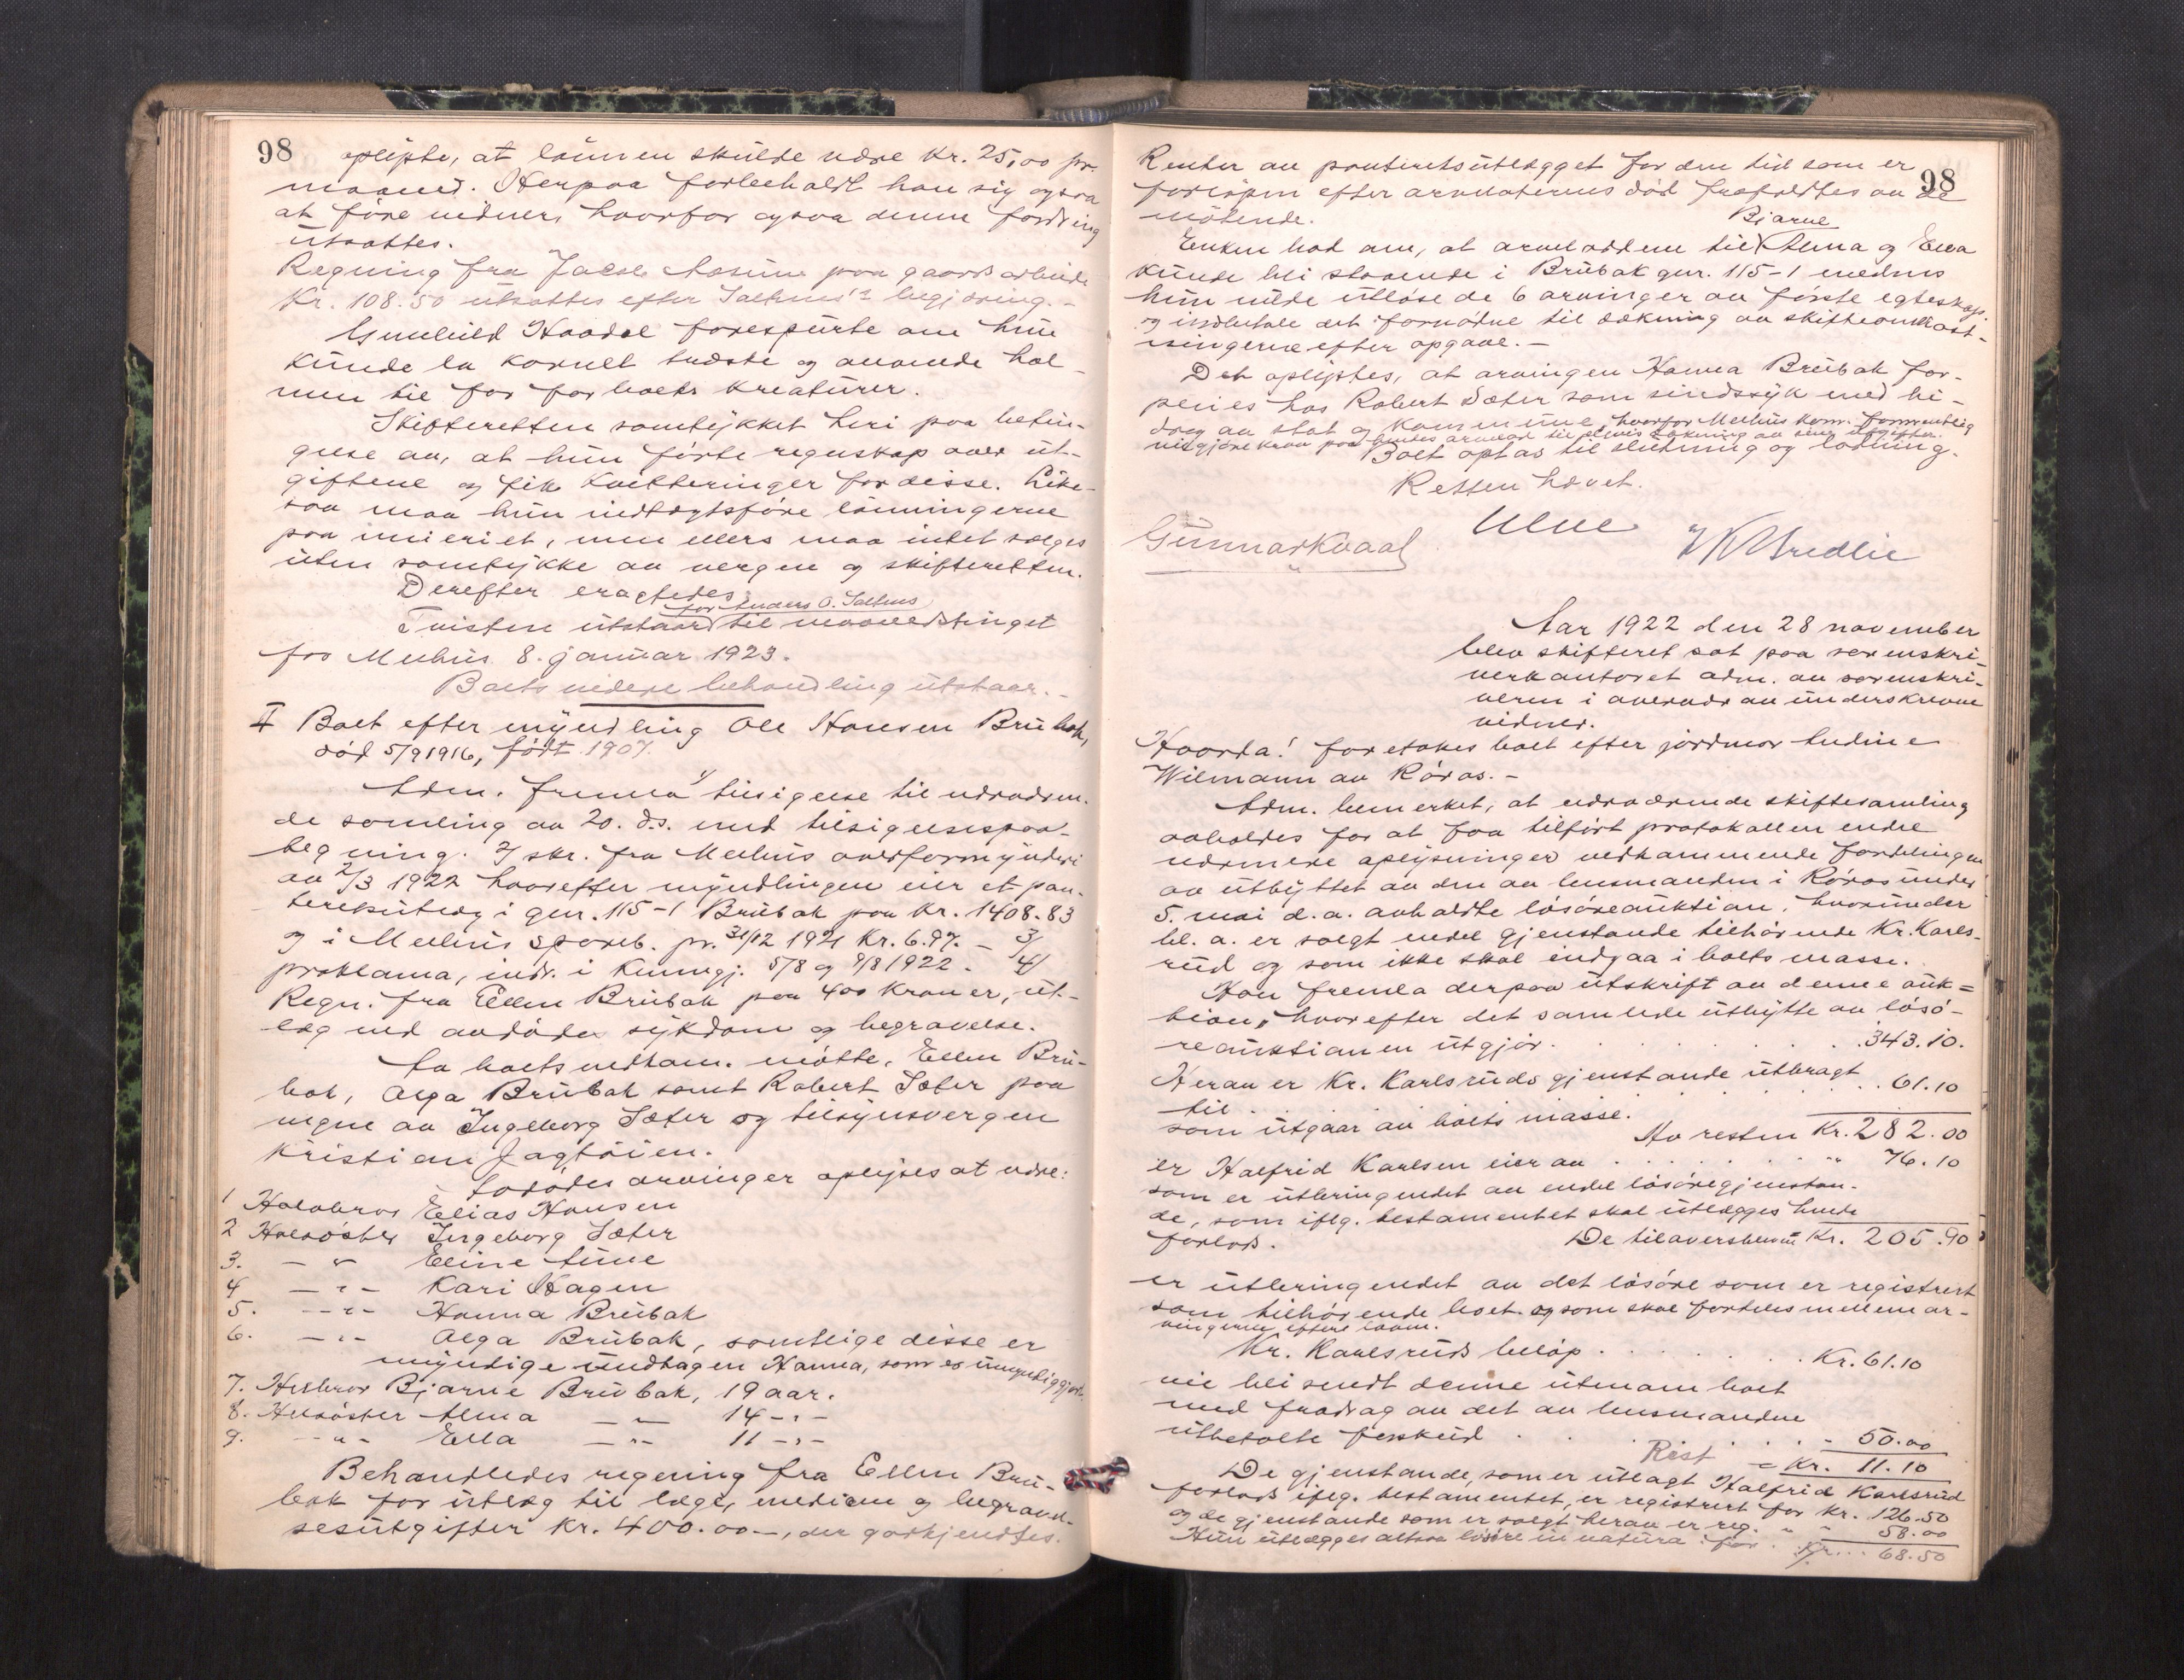 98
oplyste, at lönnen skulde være Kr. 25,00 pr.
maaned. Herpaa forbeholdt han sig ogsaa
at före vidner, hvorfor ogsaa denne fordring
utsattes.
Regning fra Jacob Aasene paa gaardsarbeide
Kr. 108.50 utsattes efter Saltnes's begjæring. -
Gunhild Haadal forespurte om hun
kunde la kornet trædske og anvende hal-
men til for for boets kreaturer.
Skifteretten samtykket heri paa betin-
gelse av, at hun förte regnskap over ut-
giftene og fik kvitteringer for disse. Like-
saa maa hun indtægtsföre lönningerne
paa meieriet, men ellers maa intet sælges
uten samtykke av vergen og skifteretten.
Derefter eragtedes:
for Anders O. Saltnes
Tvisten utstaar til maanedstinget
for Melhus 8. januar 1923.
Boets videre behandling utstaar. -
II Boet efter myndling Ole Hansen Brubak,
död 5/9 1916, födt 1907.
Adm. fremla 1/ tilsigelse til nærværen-
de samling av 20. d.s. med tilsigelsespaa-
tegning. 2/ skr. fra Melhus overformynderi
av 2/3 1922 hvorefter myndlingen eier et pan-
teretsutlæg i gnr. 115-1 Brubak paa Kr. 1408.83
og i Melhus spareb. pr. 31/12 1921 Kr. 6.97. - 3/
proklama, indr. i Kunngj. 5/8 og 9/8 1922. 4/
Regn. fra Ellen Brubak paa 400 kroner, ut-
læg ved avdödes sykdom og begravelse.
Av boets vedkom. mötte, Ellen Bru-
bak, Olga Brubak samt Robert Sæter paa
vegne av Ingeborg Sæter og tilsynsvergen
Kristian Jagtöien.
Avdödes arvinger oplyses at være:
1 Halvbror Elias Hansen
2 Halvsöster Ingeborg Sæter
3. - " - Eline Aune
4 - " - Kari Hagen
5. - " - Hanna Brubak
6. - " - Olga Brubak, samtlige disse er
myndige undtagen Hanna, som er umyndiggjort.
7. Helbror Bjarne Brubak, 19 aar.
8. Helsöster Alma - " - 14 - " -
9. - " - Ella - " - 11 - " -
Behandledes regning fra Ellen Bru-
bak for utlæg til læge, medicin og begravel-
sesutgifter Kr. 400.00 -, der godkjendtes.
98
Renter av panteretsutlægget for den tid som er
forlöpen efter arvelaterens död frafaldtes av de
mötende.
Bjarne
Enken bad om, at arveloddene til Alma og Ella
kunde bli staaende i Brubak gnr. 115-1 medens
hun vilde utlöse de 6 arvinger av förste egteskap.
og indbetale det fornödne til dækning av skifteomkost-
ningerne efter opgave. -
Det oplystes, at arvingen Hanna Brubak for-
pleies hos Robert Sæter som sindssyk med bi-
drag av stat og kommune, hvorfor Melhus kom. formentlig
vil gjöre krav paa hendes arvelod til delvis dækning av sine utgifter.
Boet optas til slutning og lodning.
Retten hævet.
Gunnar Kvaal
Aar 1922 den 28 november
blev skifteret sat paa sorenskri-
verkontoret adm. av sorenskri-
veren i overvær av underskrevne
vidner.
Hvorda! foretokes boet efter jordmor Ludine
Wilmann av Röros. -
Adm. bemerket, at nærværende skiftesamling
avholdes for at faa tilfört protokollen endel
nærmere oplysninger vedkommende fordelingen
av utbyttet av den av lensmanden i Röros under
5. mai d.a. avholdte lösöreauktion, hvorunder
bl. a. er solgt endel gjenstande tilhörende Kr. Karls-
rud og som ikke skal indgaa i boets masse.
Han fremla derpaa utskrift av denne auk-
tion, hvorefter det samlede utbytte av lösö-
reauktionen utgjör . . . . . . . . 343.10.
Herav er Kr. Karlsruds gjenstande utbragt
til . . . . . . . . 61.10
som utgaar av boets masse.
Av resten Kr. 282.00
er Halfrid Karlsen eier av . . . . . . " 76.10
som er utbringendet av endel lösöregjenstan-
de, som iflg. testamentet skal utlægges hende
forlods.
De tilovers blevne Kr. 205.90
er utbringendet av det lösöre som er registrert
som tilhörende boet. og som skal fordeles mellem ar-
vingerne efter loven.
Kr. Karlsruds belöp . . . . . . . Kr. 61.10
vil bli sendt denne utenom boet
med fradrag av det av lensmanden
utbetalte forskud . . . . . . - 50.00
Rest - Kr. 11.10
De gjenstande, som er utlagt Halfrid Karlsrud
forlods iflg. testamentet, er registrert for Kr. 126.50
og de gjenstande som er solgt herav er reg. " " 58.00
Hun utlægges altsaa lösöre in natura for . Kr. . . 68.50